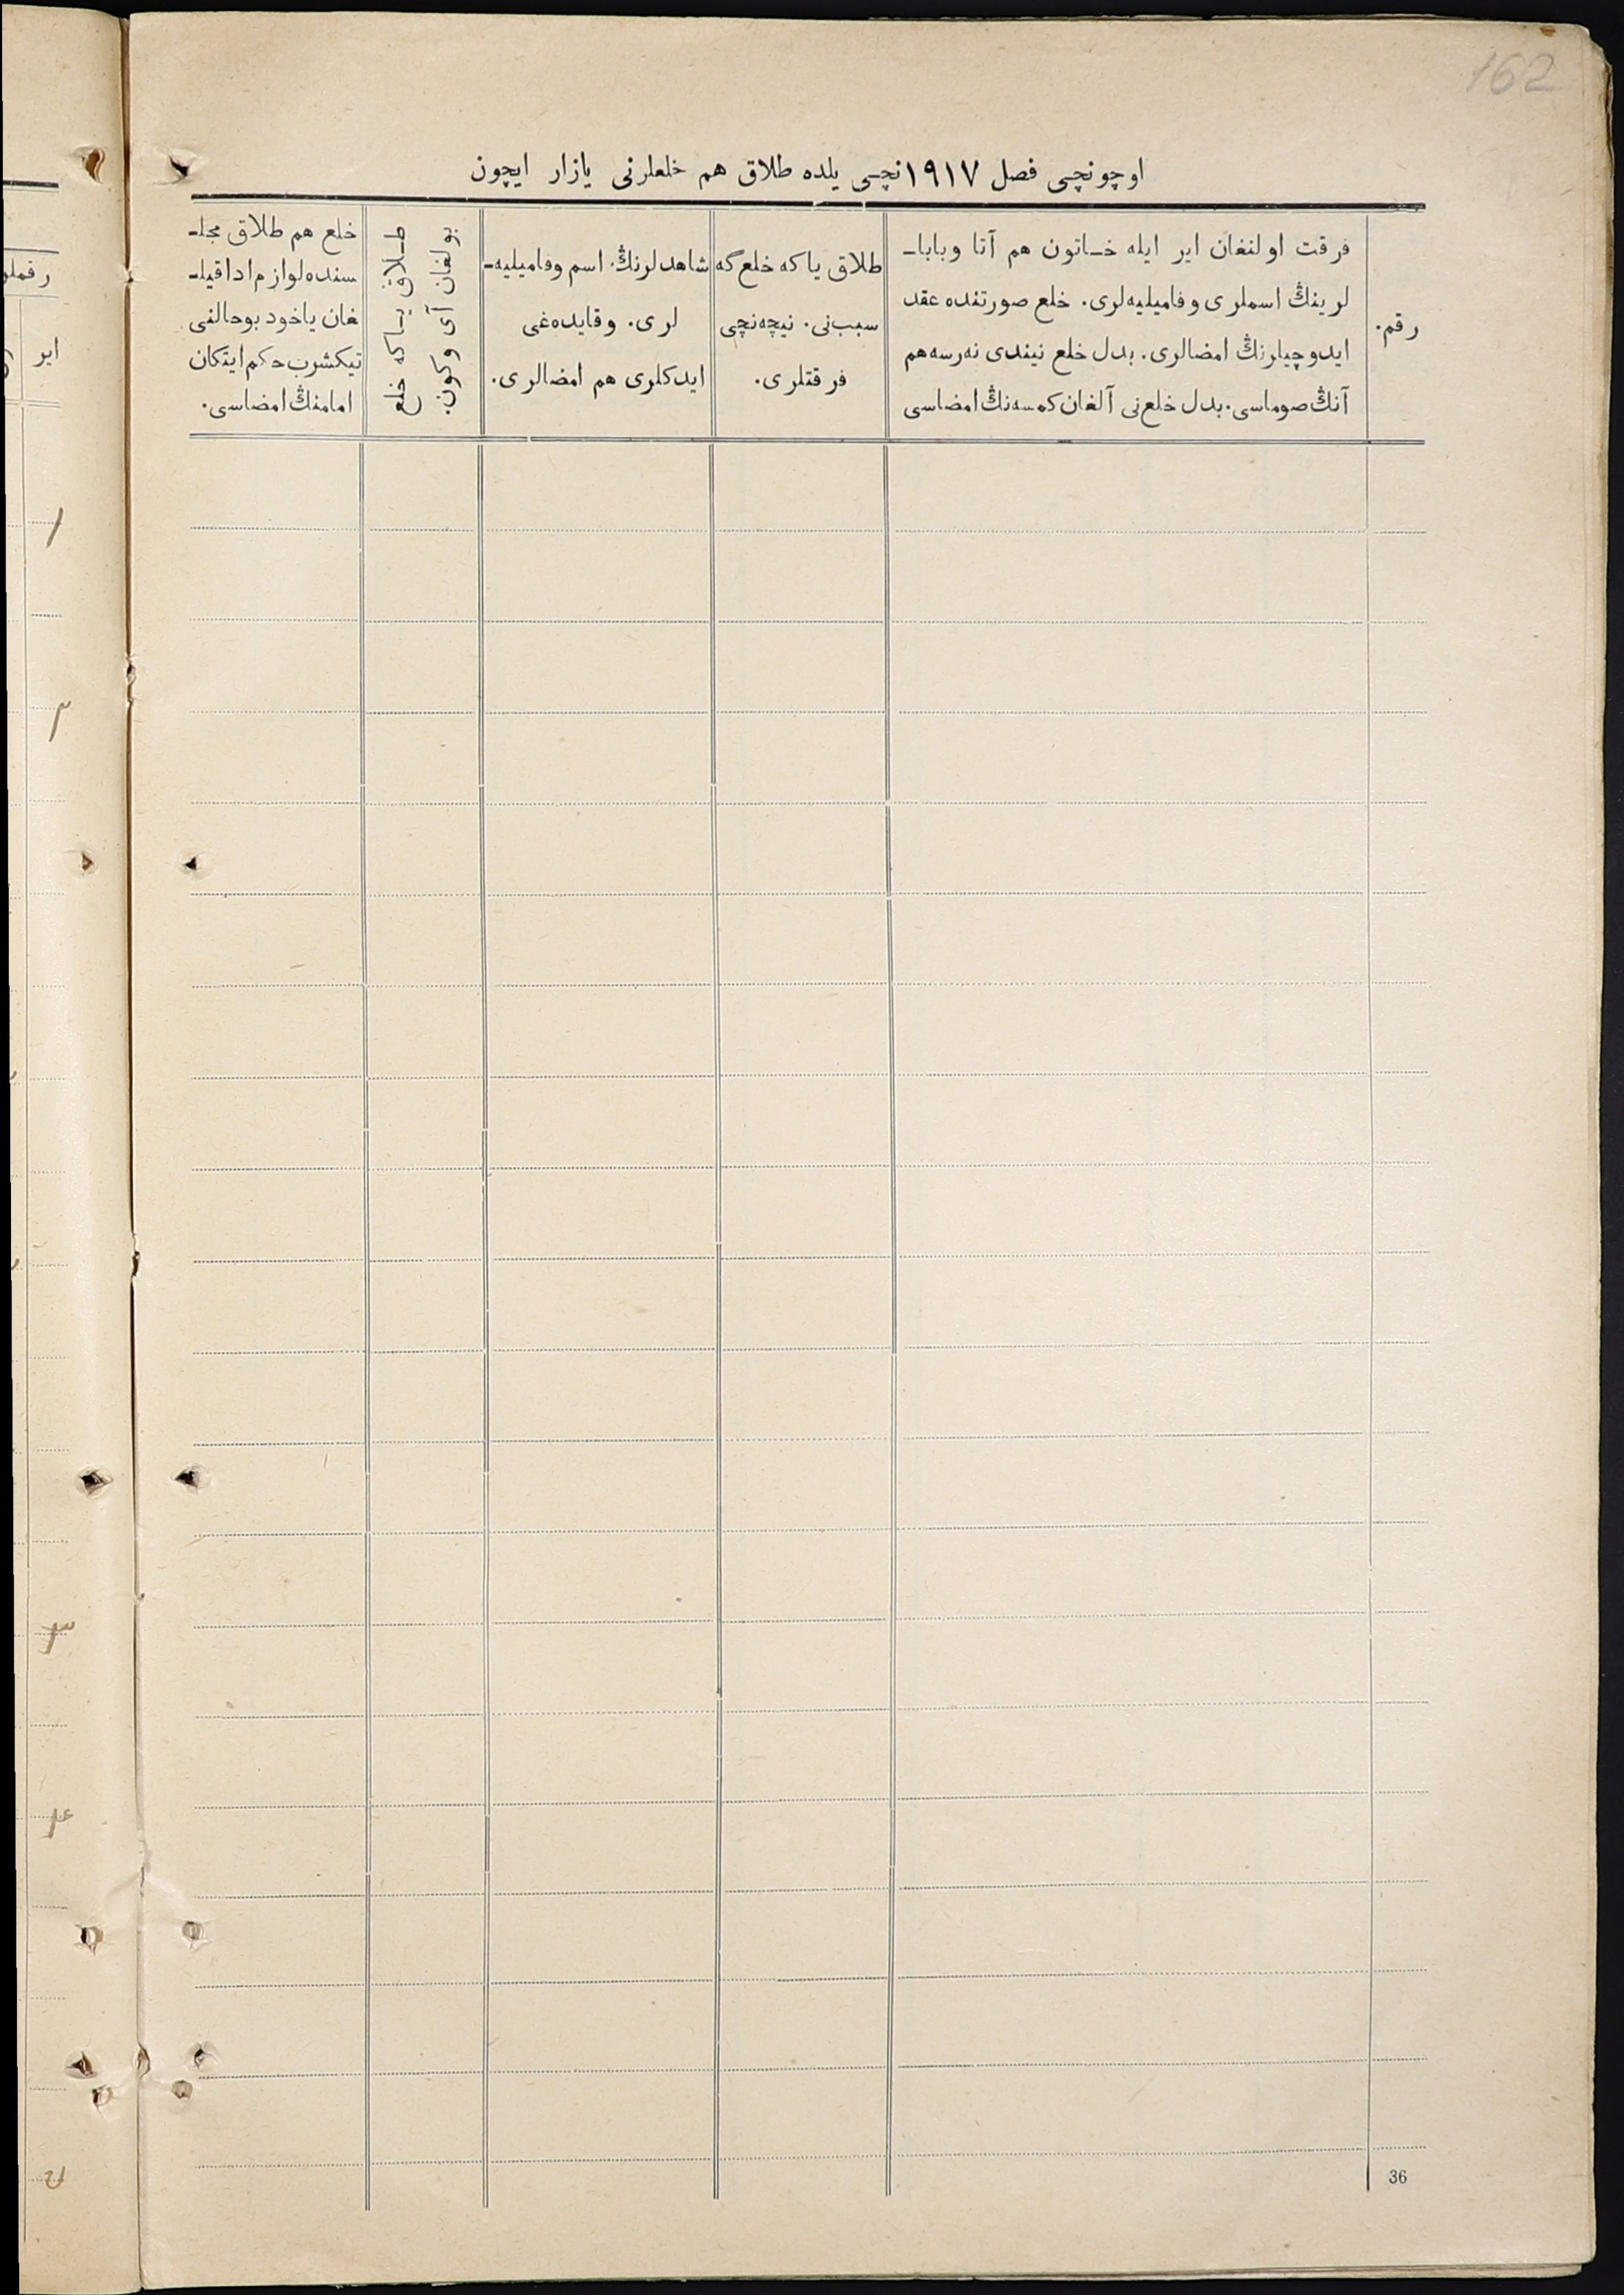 162
اوچونچی فصل ١٩١٧نچی یلده طلاق هم خلعلرنی یازار ایچون
رقم.
فرقت اولنغان ایر ایله خاتون هم آتا وبابا-
لرینڭ اسملری وفامیلیه‌لری. خلع صورتنده عقد
ایدوچیلرنڭ امضالری. بدل خلع نیندی نه‌رسه هم
آنڭ صوماسی. بدل خلع‌نی آلغان کمسه‌نڭ امضاسی
طلاق یاکه خلع‌گه
سبب‌نی. نیچه‌نچی
فرقتلری.
شاهدلرنڭ اسم وفامیلیه-
لری. وقایده‌غی
ایدکلری هم امضالری.
طلاق یاکه خلع
بولغان آی وکون.
خلع هم طلاق مجلـ
سنده لوازم ادا قیلـ
غان یاخود بوحالنی
تیکشرب حکم ایتکان
امامنڭ امضاسی.
36
رقملر
ایر
١
٢
٣
۴